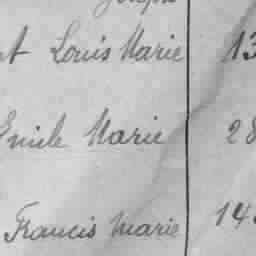 Joseph
t Louis Marie 13
Emile Marie 28
Francis Marie 14